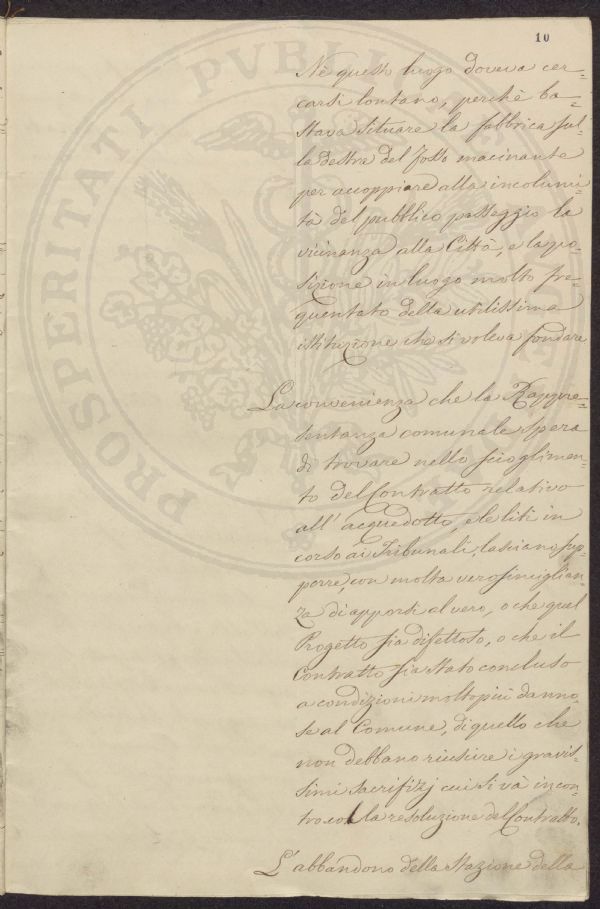 10
Nè questo luogo doveva cer-
carsi lontano, perchè ba-
stava situare la fabbrica sul-
la destra del fosso macinante
per accoppiare alla incolumi-
tà del pubblico passeggio la
vicinanza alla Città, e la po-
sizione in luogo molto fre-
quentato della utilissima
istituzione che si voleva fondare
La convenienza che la Rappre-
sentanza comunale spera
di trovare nello scioglimen-
to del Contratto relativo
all'acquedotto, e le liti in
corso ai Tribunali, lasciano sup-
porre, con molta verosimiglian-
za di apporsi al vero, o che quel
Progetto sia difettoso, o che il
Contratto sia stato concluso
a condizioni molto più danno-
se al Comune, di quello che
non debbano riuscire i gravis-
simi sacrifizj cui si và incon-
tro con la resoluzione del Contratto.
L'abbandono della Stazione della
PROSPERITATI PVBLICAE